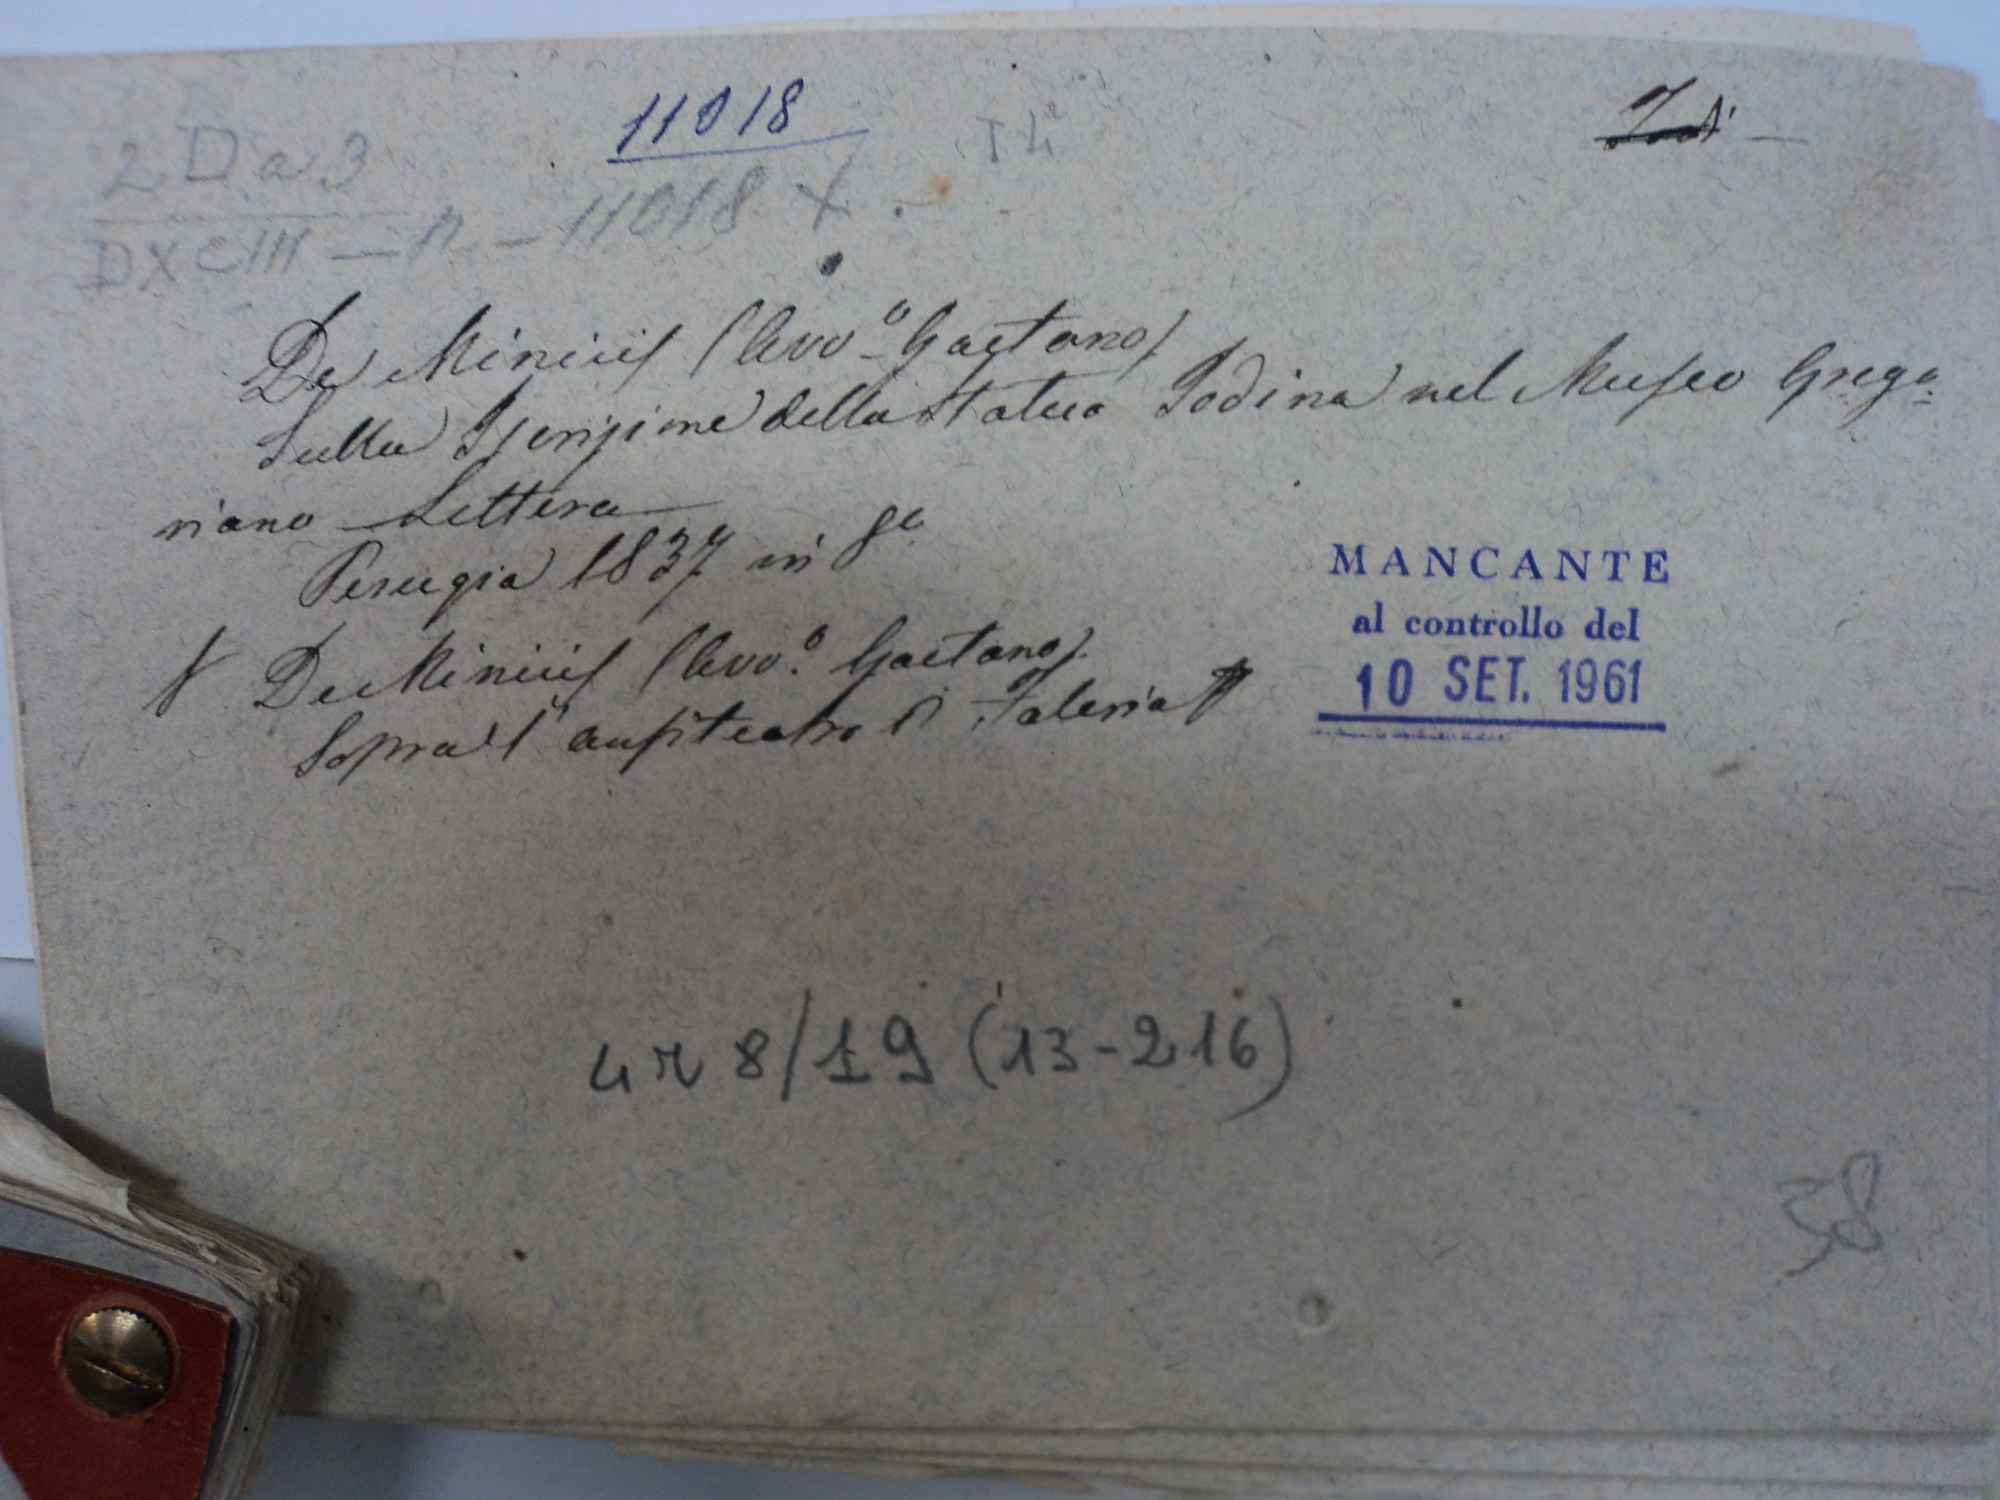 11018
Todi —
2 D a 3
T 4
DXCIII — n - 11018 X.
De Minicis (Avv.º Gaetano)
Sulla Iscrizione della statua Todina nel Museo Grego=
riano — Lettera —
Perugia 1837 in 8º
De Minicis (Avv.º Gaetano)
Sopra l'anfiteatro di Faleria
MANCANTE
al controllo del
10 SET. 1961
4 r 8/19 (13-216)